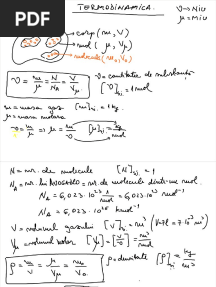 PDF
TERMODINAMICA.
ν → Niu
μ = Miu
corp (m, V)
mol (μ, Vμ)
molecule (m₀, V₀)
ν = m/μ = N/N_A = V/Vμ
ν = cantitatea de substanta
[ν]SI = 1 mol
m = masa gaz [m]SI = kg
μ = masa molara
ν = m/μ ⇒ μ = m/ν [μ]SI = kg/mol
N = nr. de molecule [N]SI = 1
N_A = nr. lui AVOGADRO = nr. de molecule dintr-un mol.
N_A = 6,023 · 10²³ 1/mol = 6,023 · 10²³ mol⁻¹
N_A = 6,023 · 10²⁶ kmol⁻¹
V = volumul gazului [V]SI = m³
Vμ = volumul molar [Vμ] = m³/mol
ρ = m/V = μ/Vμ = m₀/V₀
ρ = densitate [ρ]SI = kg/m³